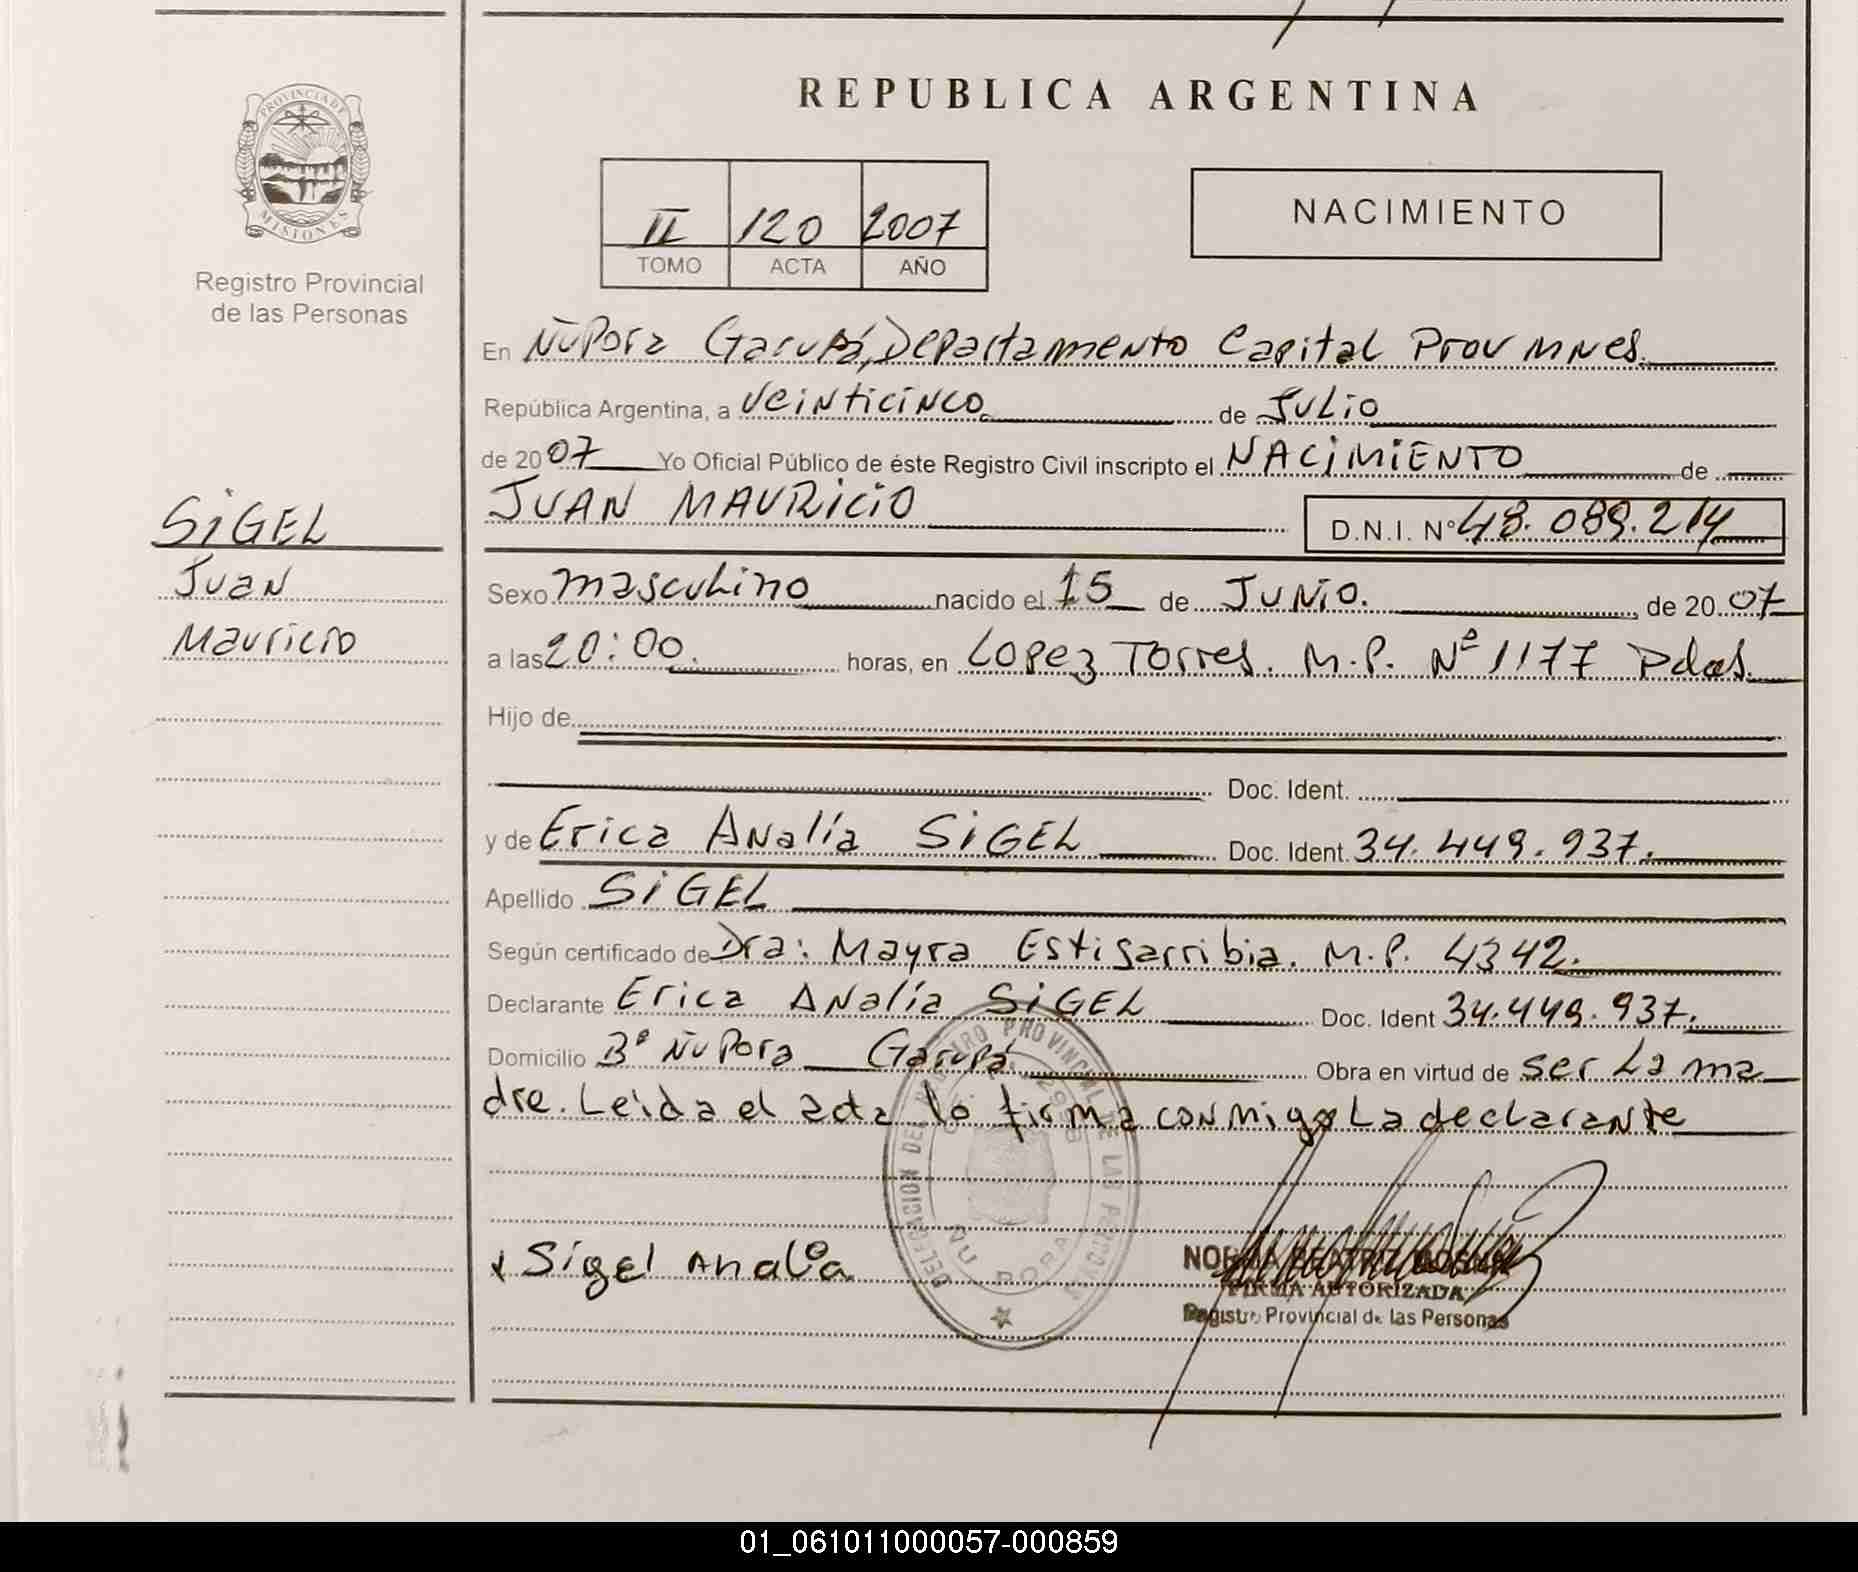 REPUBLICA ARGENTINA
PROVINCIA DE MISIONES
Registro Provincial
de las Personas
II 120 2007
TOMO ACTA AÑO
NACIMIENTO
En Ñu Pora Garupá, Departamento Capital Prov Mnes.
República Argentina, a veinticinco de Julio
de 2007 Yo Oficial Público de éste Registro Civil inscripto el NACIMIENTO de
JUAN MAURICIO D.N.I. Nº 48.089.214
SIGEL
Juan
Mauricio
Sexo masculino nacido el 15 de JUNIO. de 2007
a las 20:00. horas, en Lopez Torres. M.P. Nº 1177 Pdas.
Hijo de
Doc. Ident.
y de Erica Analía SIGEL Doc. Ident. 34.449.937.
Apellido SIGEL
Según certificado de Dra: Mayra Estigarribia. M.P. 4342.
Declarante Erica Analía SIGEL Doc. Ident 34.449.937.
Domicilio Bº Ñu Pora Garupá Obra en virtud de ser la ma
dre. Leida el acta lo firma conmigo La declarante
DELEGACION DEL REGISTRO PROVINCIAL DE LAS PERSONAS
ÑU PORA
x Sigel Analia
NORMA BEATRIZ
FIRMA AUTORIZADA
Registro Provincial de las Personas
01_061011000057-000859